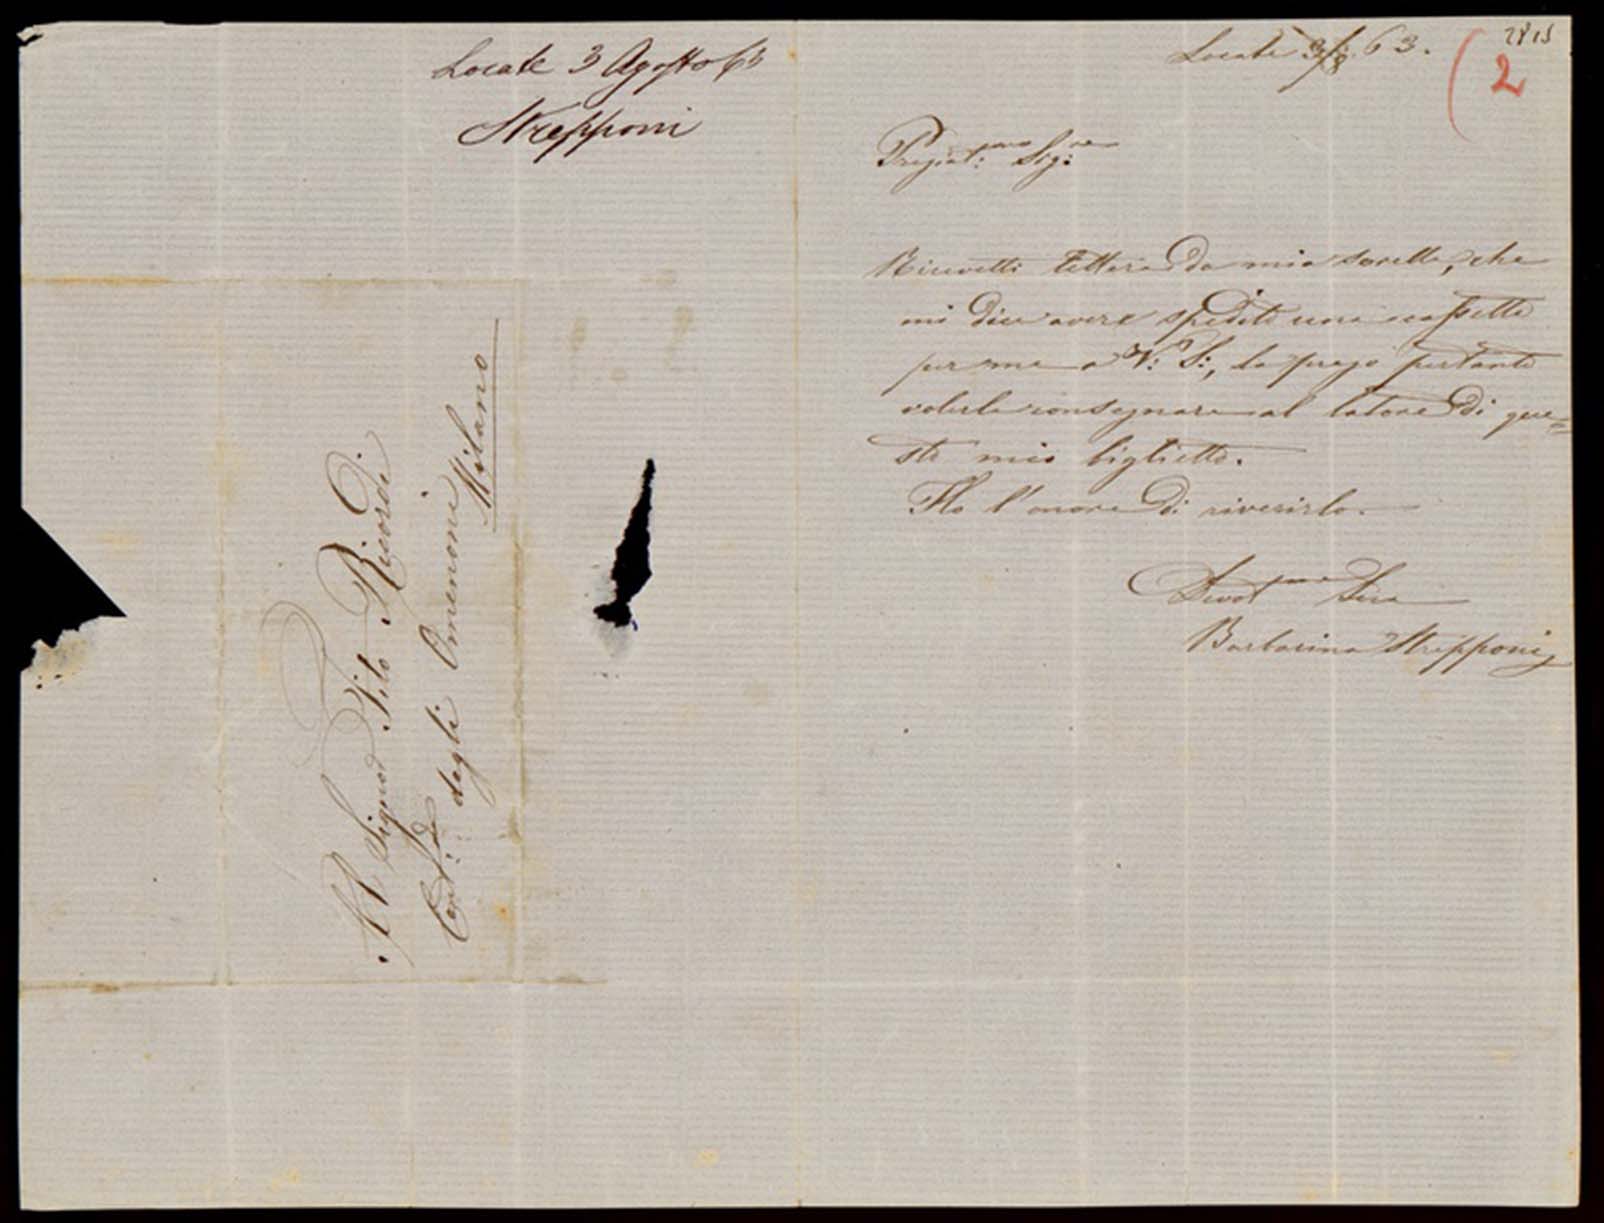 Locate 3 Agosto 63
Strepponi
Al Signor Tito Ricordi
Cont.da degli Omenoni
Milano
2
Locate 3/8 63.
Pregiat:mo Sig:re
Ricevetti lettera da mia sorella, che
mi dice avere spedito una cassetta
per me a V: S:, la prego pertanto
volerla consegnare al latore di que=
sto mio biglietto.
Ho l'onore di riverirla.
Devotma Serva
Barberina Strepponi